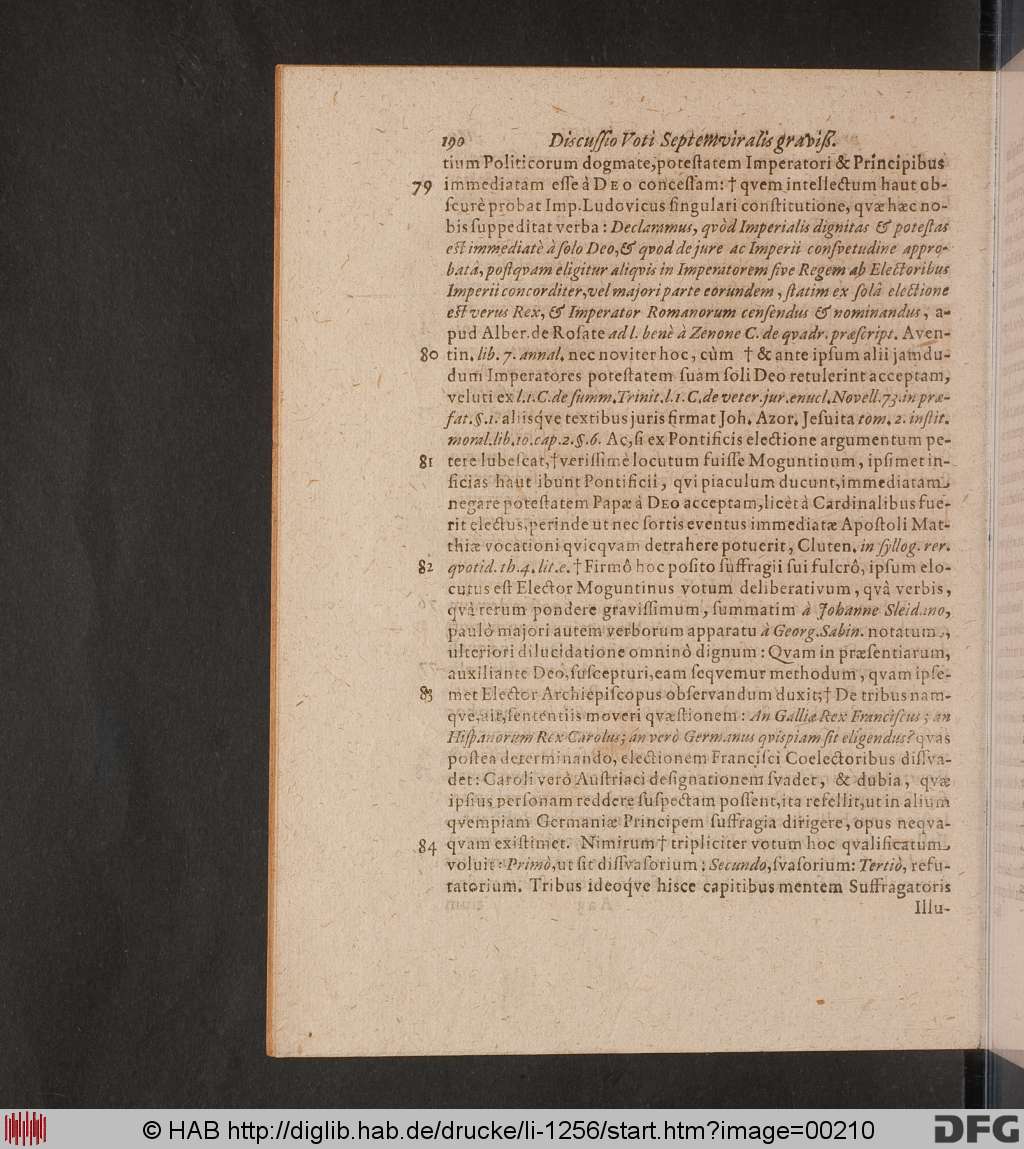 190 Discuſſio Voti Septemviralis graviß.
tium Politicorum dogmate, poteſtatem Imperatori & Principibus
79 immediatam eſſe à DEO conceſſam: † qvem intellectum haut ob-
ſcurè probat Imp. Ludovicus ſingulari conſtitutione, qvæ hæc no-
bis ſuppeditat verba: Declaramus, qvòd Imperialis dignitas & poteſtas
eſt immediatè à ſolo Deo, & qvod de jure ac Imperii conſvetudine appro-
batâ, poſtqvam eligitur aliqvis in Imperatorem ſive Regem ab Electoribus
Imperii concorditer, vel majori parte eorundem, ſtatim ex ſolâ electione
eſt verus Rex, & Imperator Romanorum cenſendus & nominandus, a-
pud Alber. de Roſate ad l. benè à Zenone C. de qvadr. præſcript. Aven-
80 tin. lib. 7. annal. nec noviter hoc, cùm † & ante ipſum alii jamdu-
dum Imperatores poteſtatem ſuam ſoli Deo retulerint acceptam,
veluti ex l.1. C. de ſumm. Trinit. l.1. C. de veter. jur. enucl. Novell. 73. in præ-
fat. §.1. aliisq́ve textibus juris firmat Joh. Azor. Jeſuita tom. 2. inſtit.
moral. lib. 10. cap. 2. §. 6. Ac, ſi ex Pontificis electione argumentum pe-
81 tere lubeſcat, † veriſſimè locutum fuiſſe Moguntinum, ipſimet in-
ficias haut ibunt Pontificii, qvi piaculum ducunt, immediatam
negare poteſtatem Papæ à DEO acceptam, licèt à Cardinalibus fue-
rit electus, perinde ut nec ſortis eventus immediatæ Apoſtoli Mat-
thiæ vocationi qvicqvam detrahere potuerit, Cluten. in ſyllog. rer.
82 qvotid. th. 4. lit. e. † Firmô hoc poſito ſuffragii ſui fulcrô, ipſum elo-
cutus eſt Elector Moguntinus votum deliberativum, qvâ verbis,
qvà rerum pondere graviſſimum, ſummatim à Johanne Sleidano,
paulò majori autem verborum apparatu à Georg. Sabin. notatum,
ulteriori dilucidatione omninò dignum: Qvam in præſentiarum,
auxiliante Deo, ſuſcepturi, eam ſeqvemur methodum, qvam ipſe-
83 met Elector Archiepiſcopus obſervandum duxit; † De tribus nam-
qve, ait, ſententiis moveri qvæſtionem: An Galliæ Rex Franciſcus; an
Hiſpanorum Rex Carolus; an verò Germanus qvispiam ſit eligendus? qvas
poſtea determinando, electionem Franciſci Coelectoribus diſſva-
det: Caroli verò Auſtriaci deſignationem ſvadet, & dubia, qvæ
ipſius perſonam reddere ſuſpectam poſſent, ita refellit, ut in alium
qvempiam Germaniæ Principem ſuffragia dirigere, opus neqva-
84 qvam exiſtimet. Nimirum † tripliciter votum hoc qvalificatum
voluit: Primò, ut ſit diſſvaſorium; Secundo, ſvaſorium: Tertiò, refu-
tatorium. Tribus ideoq́ve hisce capitibus mentem Suffragatoris
Illu-
© HAB http://diglib.hab.de/drucke/li-1256/start.htm?image=00210
DFG